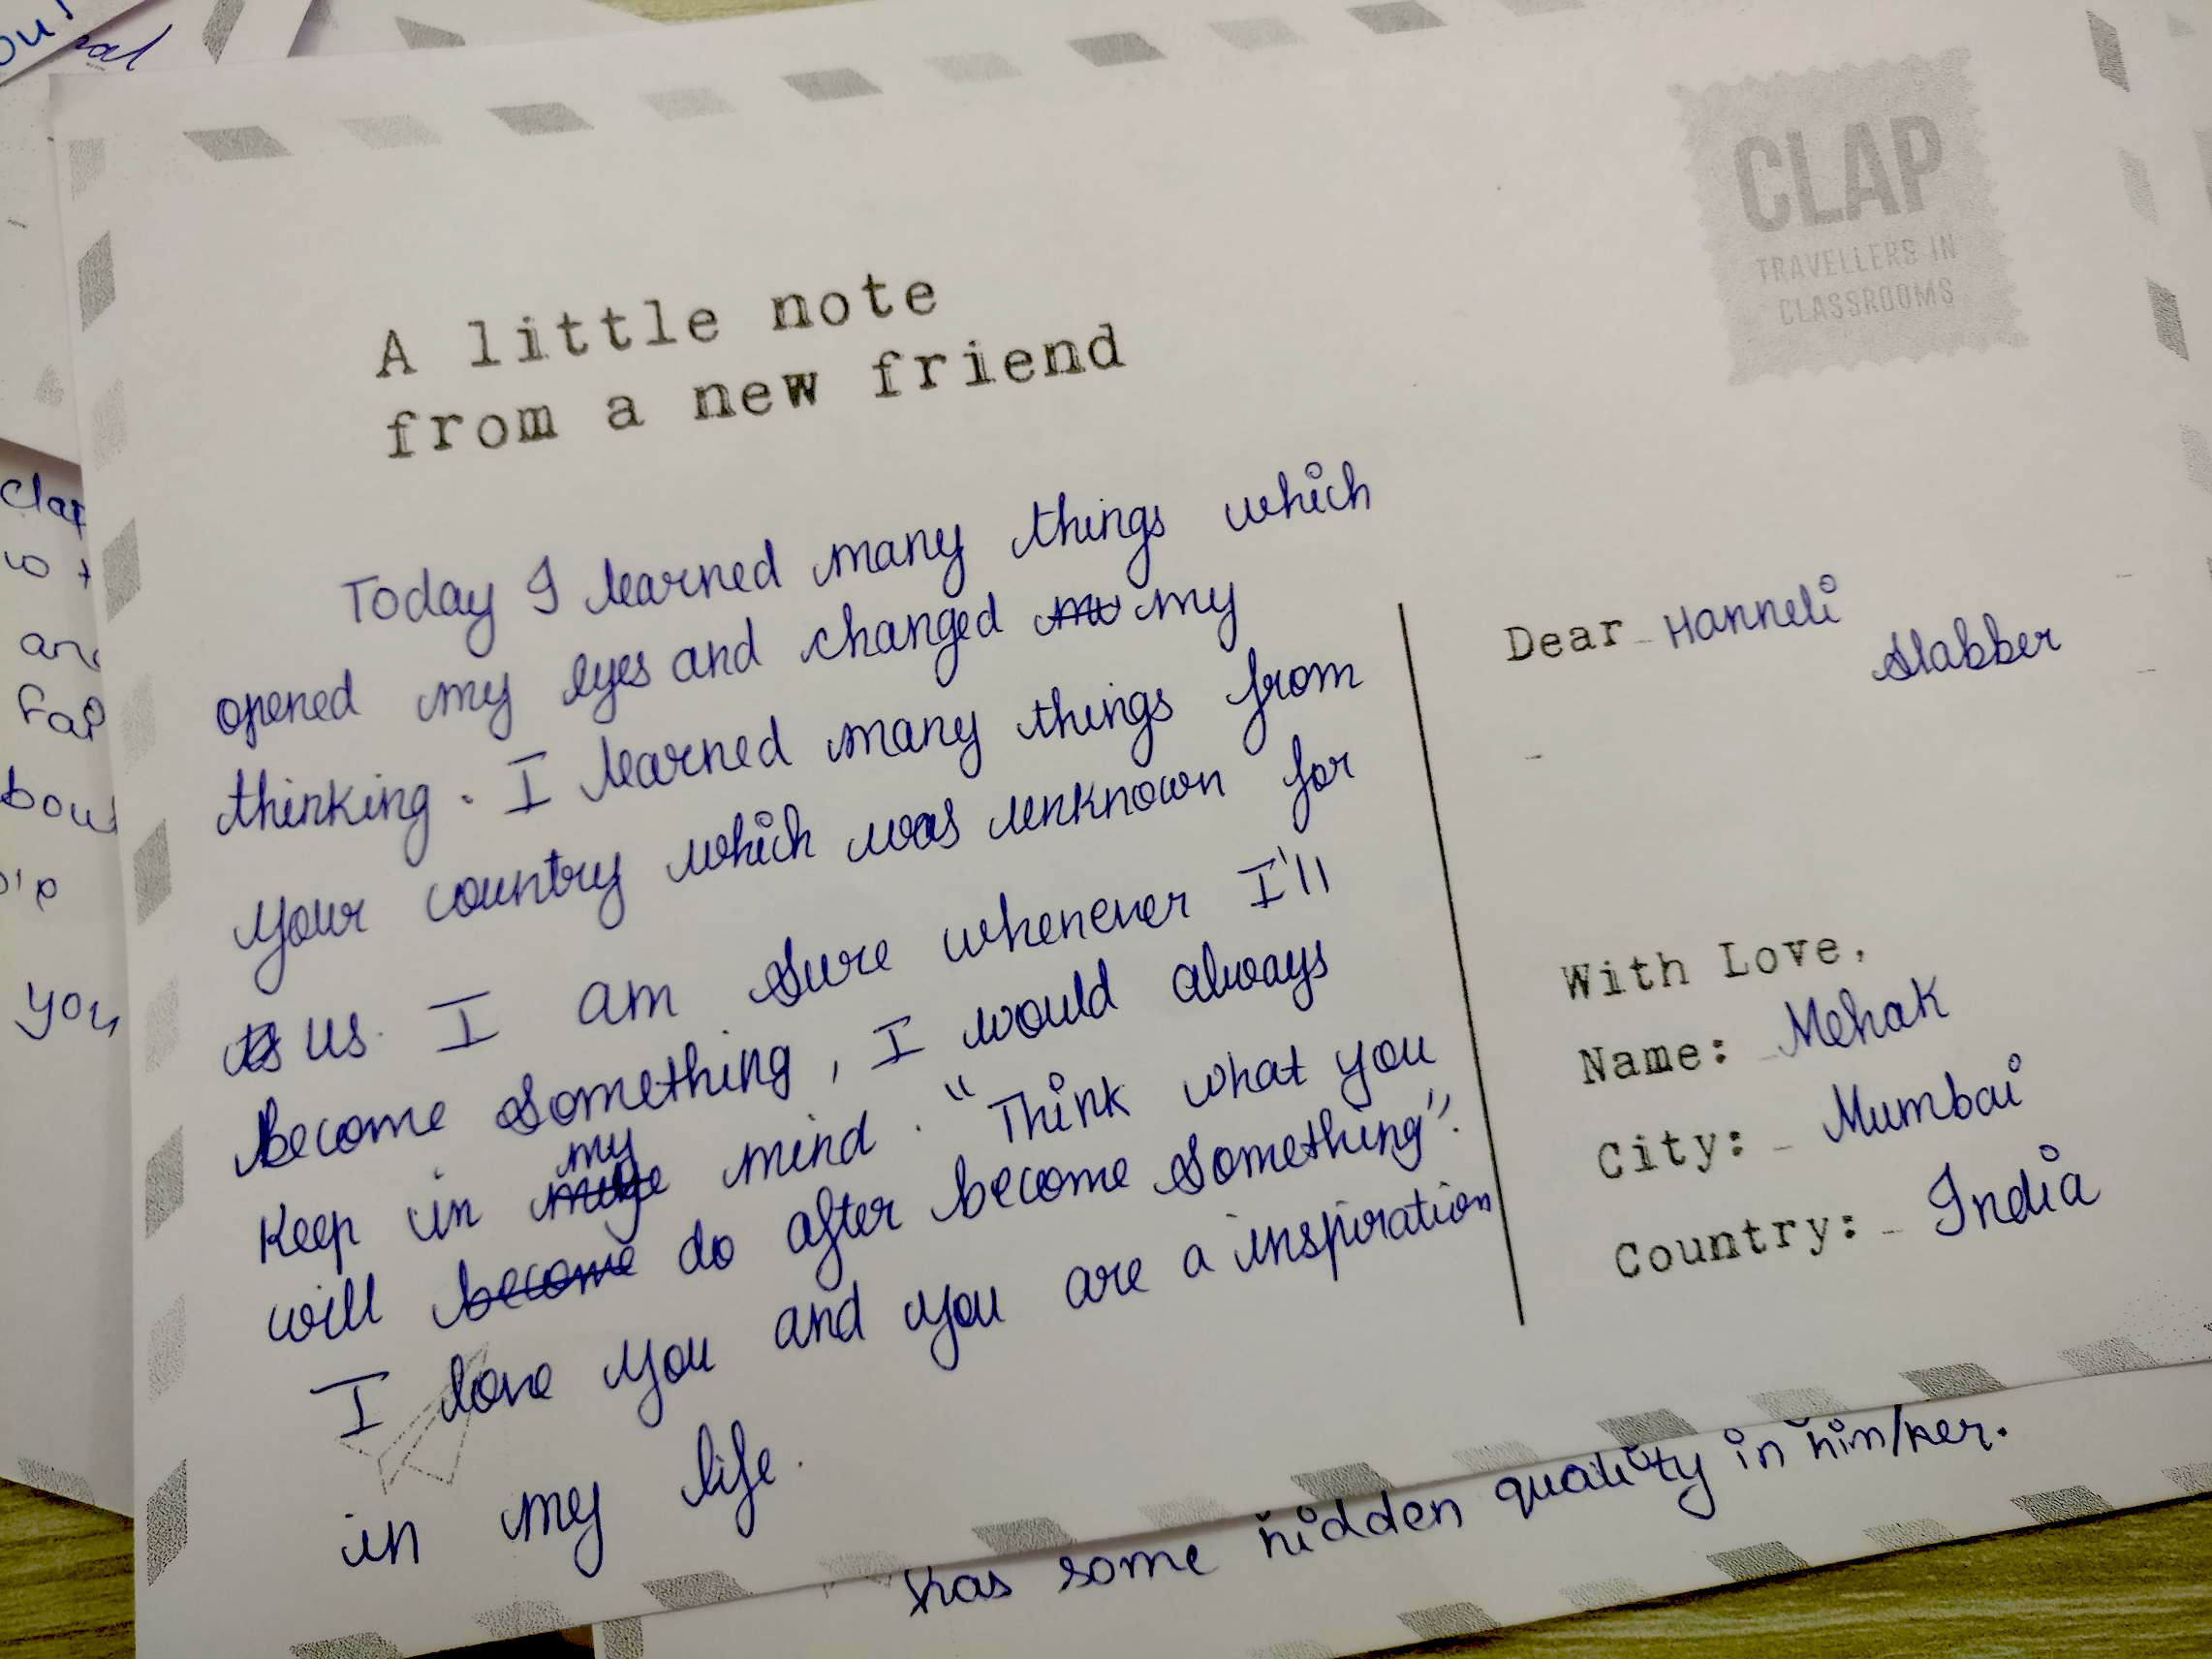 CLAP
TRAVELLERS IN
CLASSROOMS
A little note
from a new friend
Today I learned many things which
opened my eyes and changed my
thinking. I learned many things from
your country which was unknown for
us. I am sure whenever I'll
become something, I would always
keep in my mind. "Think what you
will become do after become something".
I love you and you are a inspiration
in my life.
Dear Hanneli
Slabber
With Love,
Name: Mehak
City: Mumbai
Country: India
has some hidden quality in him/her.
you